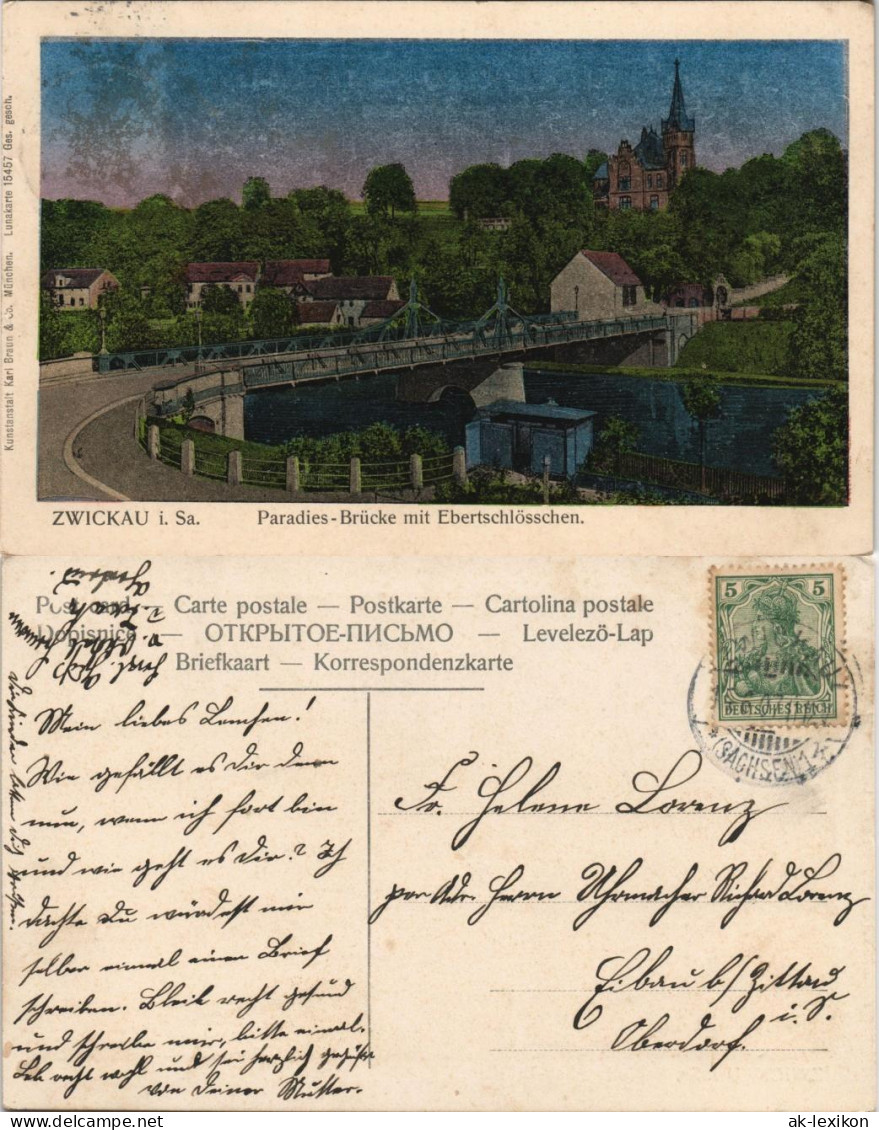 Kunstanstalt Karl Braun & Co. München. Lunakarte 15457 Ges. gesch.
ZWICKAU i. Sa. Paradies-Brücke mit Ebertschlösschen.
Postcard — Carte postale — Postkarte — Cartolina postale
Dopisnice — ОТКРЫТОЕ-ПИСЬМО — Levelező-Lap
Briefkaart — Korrespondenzkarte
5 5
DEUTSCHES REICH
(SACHSEN)
Mein liebes Lenchen!
Wie gefällt es Dir denn
nun, wenn ich fort bin
und wie geht es Dir? Ich
dachte Du würdest mir
selber einmal einen Brief
schreiben. Bleib recht gesund
und schreibe mir, bitte einmal.
Leb recht wohl und sei herzlich gegrüßt
von Deiner Mutter.
Fr. Helene Lorenz
per Adr. Herrn Uhrmacher Richard Lorenz
Eibau b/Zittau
i. S.
Oberdorf.
ak-lexikon